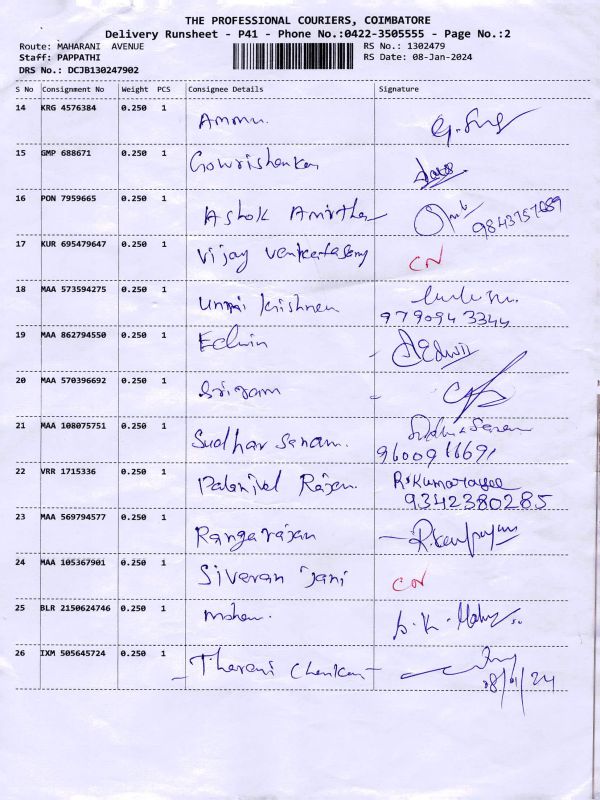 THE PROFESSIONAL COURIERS, COIMBATORE
Delivery Runsheet - P41 - Phone No.:0422-3505555 - Page No.:2
Route: MAHARANI AVENUE RS No.: 1302479
Staff: PAPPATHI RS Date: 08-Jan-2024
DRS No.: DCJB130247902
S No Consignment No Weight PCS Consignee Details Signature
14 KRG 4576384 0.250 1 Ammu.
15 GMP 688671 0.250 1 Gowrishenkan
16 PON 7959665 0.250 1 Ashok Amirtha
17 KUR 695479647 0.250 1 Vijay CN
18 MAA 573594275 0.250 1 Unni Krishnen
979094 3344
19 MAA 862794550 0.250 1 Edwin Edwin
20 MAA 570396692 0.250 1 Sriram
21 MAA 108075751 0.250 1 Sudhar Sanam.
9600916691
22 VRR 1715336 0.250 1 Rajan. R.Kumar
9342380285
23 MAA 569794577 0.250 1 Rangarajan
24 MAA 105367901 0.250 1 Siveran jani CN
25 BLR 2150624746 0.250 1 mohan.
26 IXM 505645724 0.250 1 Tharani